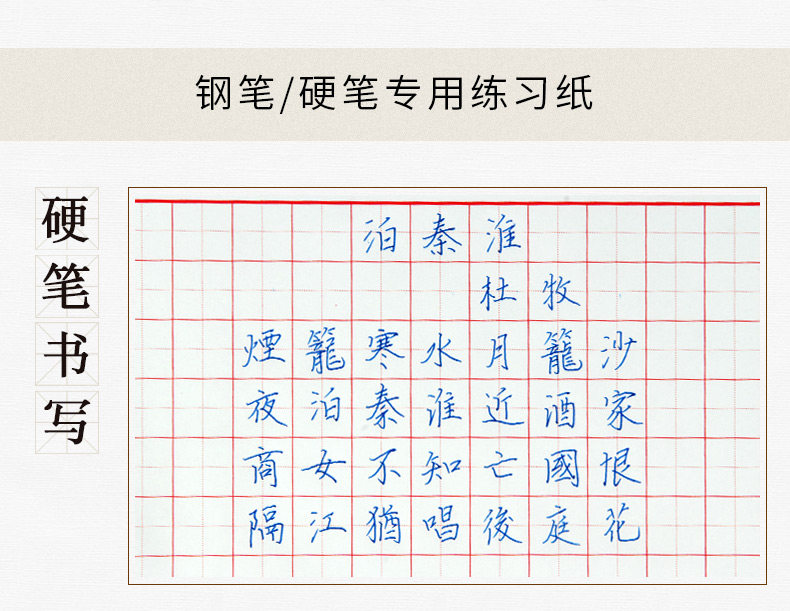 钢笔/硬笔专用练习纸
硬笔书写
泊秦淮
杜牧
煙籠寒水月籠沙
夜泊秦淮近酒家
商女不知亡國恨
隔江猶唱後庭花